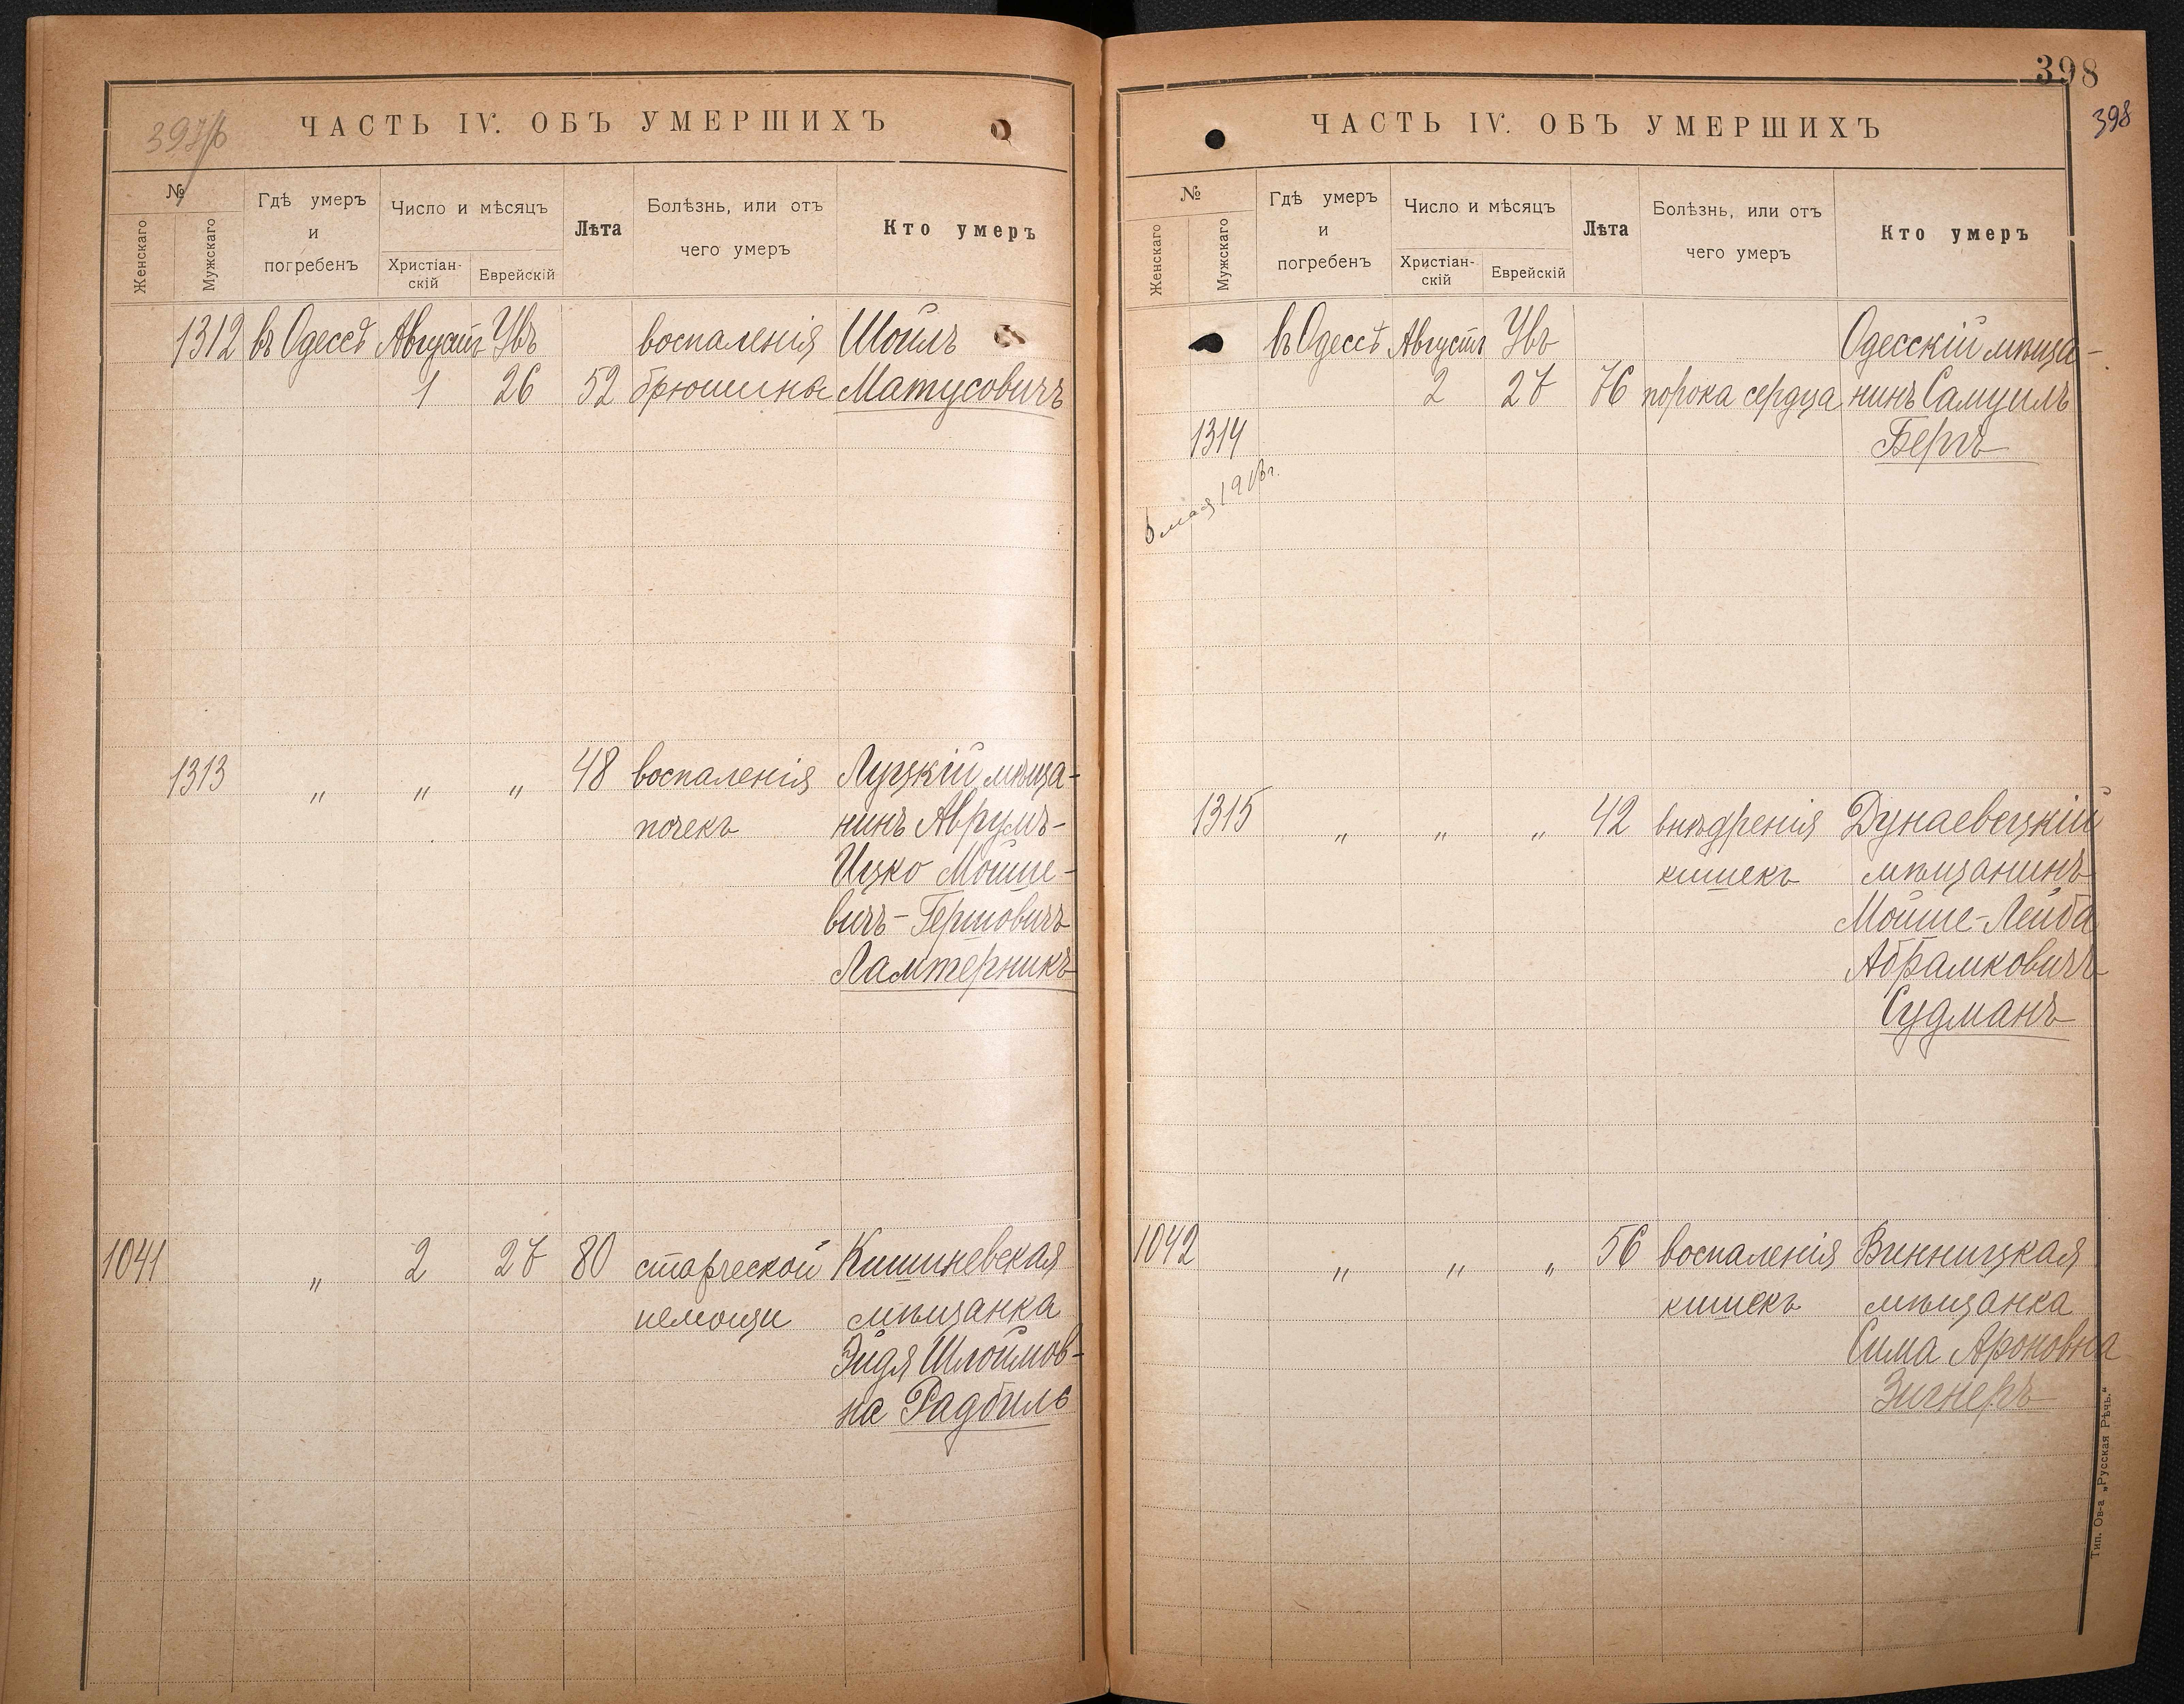 ЧАСТЬ IV. ОБЪ УМЕРШИХЪ
№
Женскаго
Мужскаго
Гдѣ умеръ
и
погребенъ
Число и мѣсяцъ
Христіан-
скій
Еврейскій
Лѣта
Болѣзнь, или отъ
чего умеръ
Кто умеръ
1312 въ Одессѣ Августъ Увъ воспаленія Шоилъ
1 26 52 брюшины Матусовичъ
1313 " " " 48 воспаленія Луцкій мѣща-
почекъ нинъ Аврумъ-
Ицко Мошке-
вичъ-Гершовичъ
Ламтерникъ
1041 " 2 27 80 старческой Кишиневская
немощи мѣщанка
Эйдя Шлоймов-
на Радбиль
398
398
ЧАСТЬ IV. ОБЪ УМЕРШИХЪ
№
Женскаго
Мужскаго
Гдѣ умеръ
и
погребенъ
Число и мѣсяцъ
Христіан-
скій
Еврейскій
Лѣта
Болѣзнь, или отъ
чего умеръ
Кто умеръ
въ Одессѣ Августъ Увъ Одесскій мѣща-
2 27 76 порока сердца нинъ Самуилъ
1314 Бергъ
мая
1315 " " " 42 внѣдренія Дунаевецкій
кишекъ мѣщанинъ
Мойше-Лейба
Абрамковичъ
Судманъ
1042 " " " 56 воспаленія Винницкая
кишекъ мѣщанка
Сима Ароновна
Зигнеръ
Тип. Ов-а „Русская Рѣчь.“